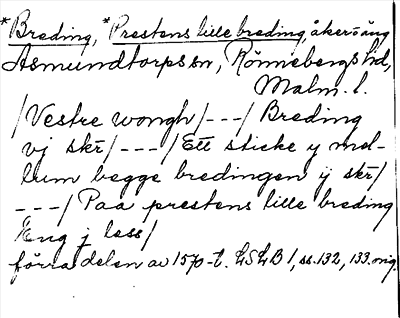 *Breding, *Prestens lille breding, åker o äng
Asmundtorps sn, Rönnebergs hd,
Malm. l.
/Vestre wongh/---/ Breding
vj skr/---/ Ett sticke y mel-
lum begge bredingen ij skr/
---/ Paa prestens lille breding
Eng j less/
förra delen av 1570-t. LSLB 1, ss. 132, 133. orig.